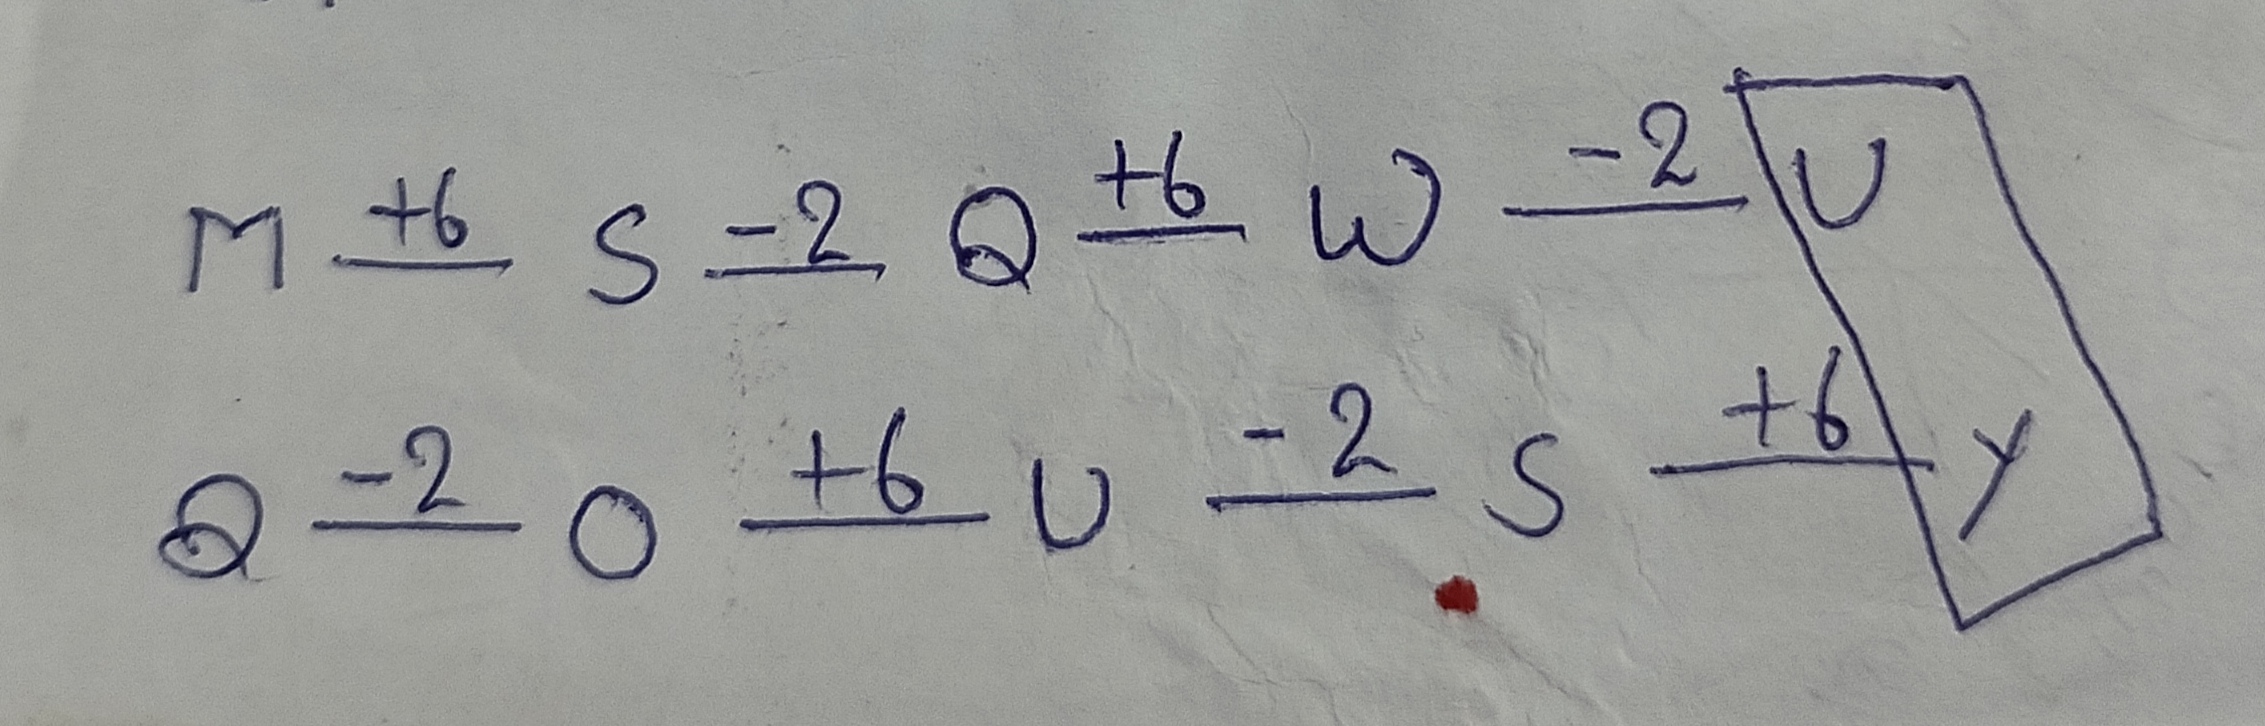 M +6 S -2 Q +6 W -2 U
Q -2 O +6 U -2 S +6 Y